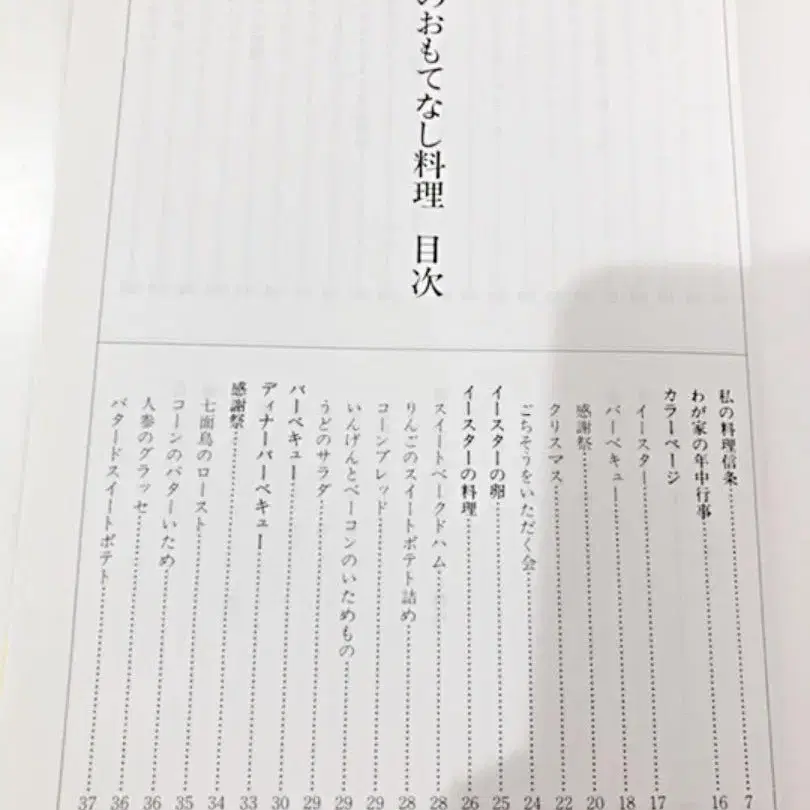 のおもてなし料理　目次
私の料理信条……7
わが家の年中行事……16
カラーページ
イースター……17
バーベキュー……18
感謝祭……20
クリスマス……22
ごちそうをいただく会……24
イースターの卵……25
イースターの料理……26
スイートベークドハム……28
りんごのスイートポテト詰め……28
コーンブレッド……29
いんげんとベーコンのいためもの……29
うどのサラダ……29
バーベキュー……30
ディナーバーベキュー……33
感謝祭……34
七面鳥のロースト……35
コーンのバターいため……36
人参のグラッセ……36
バタードスイートポテト……37